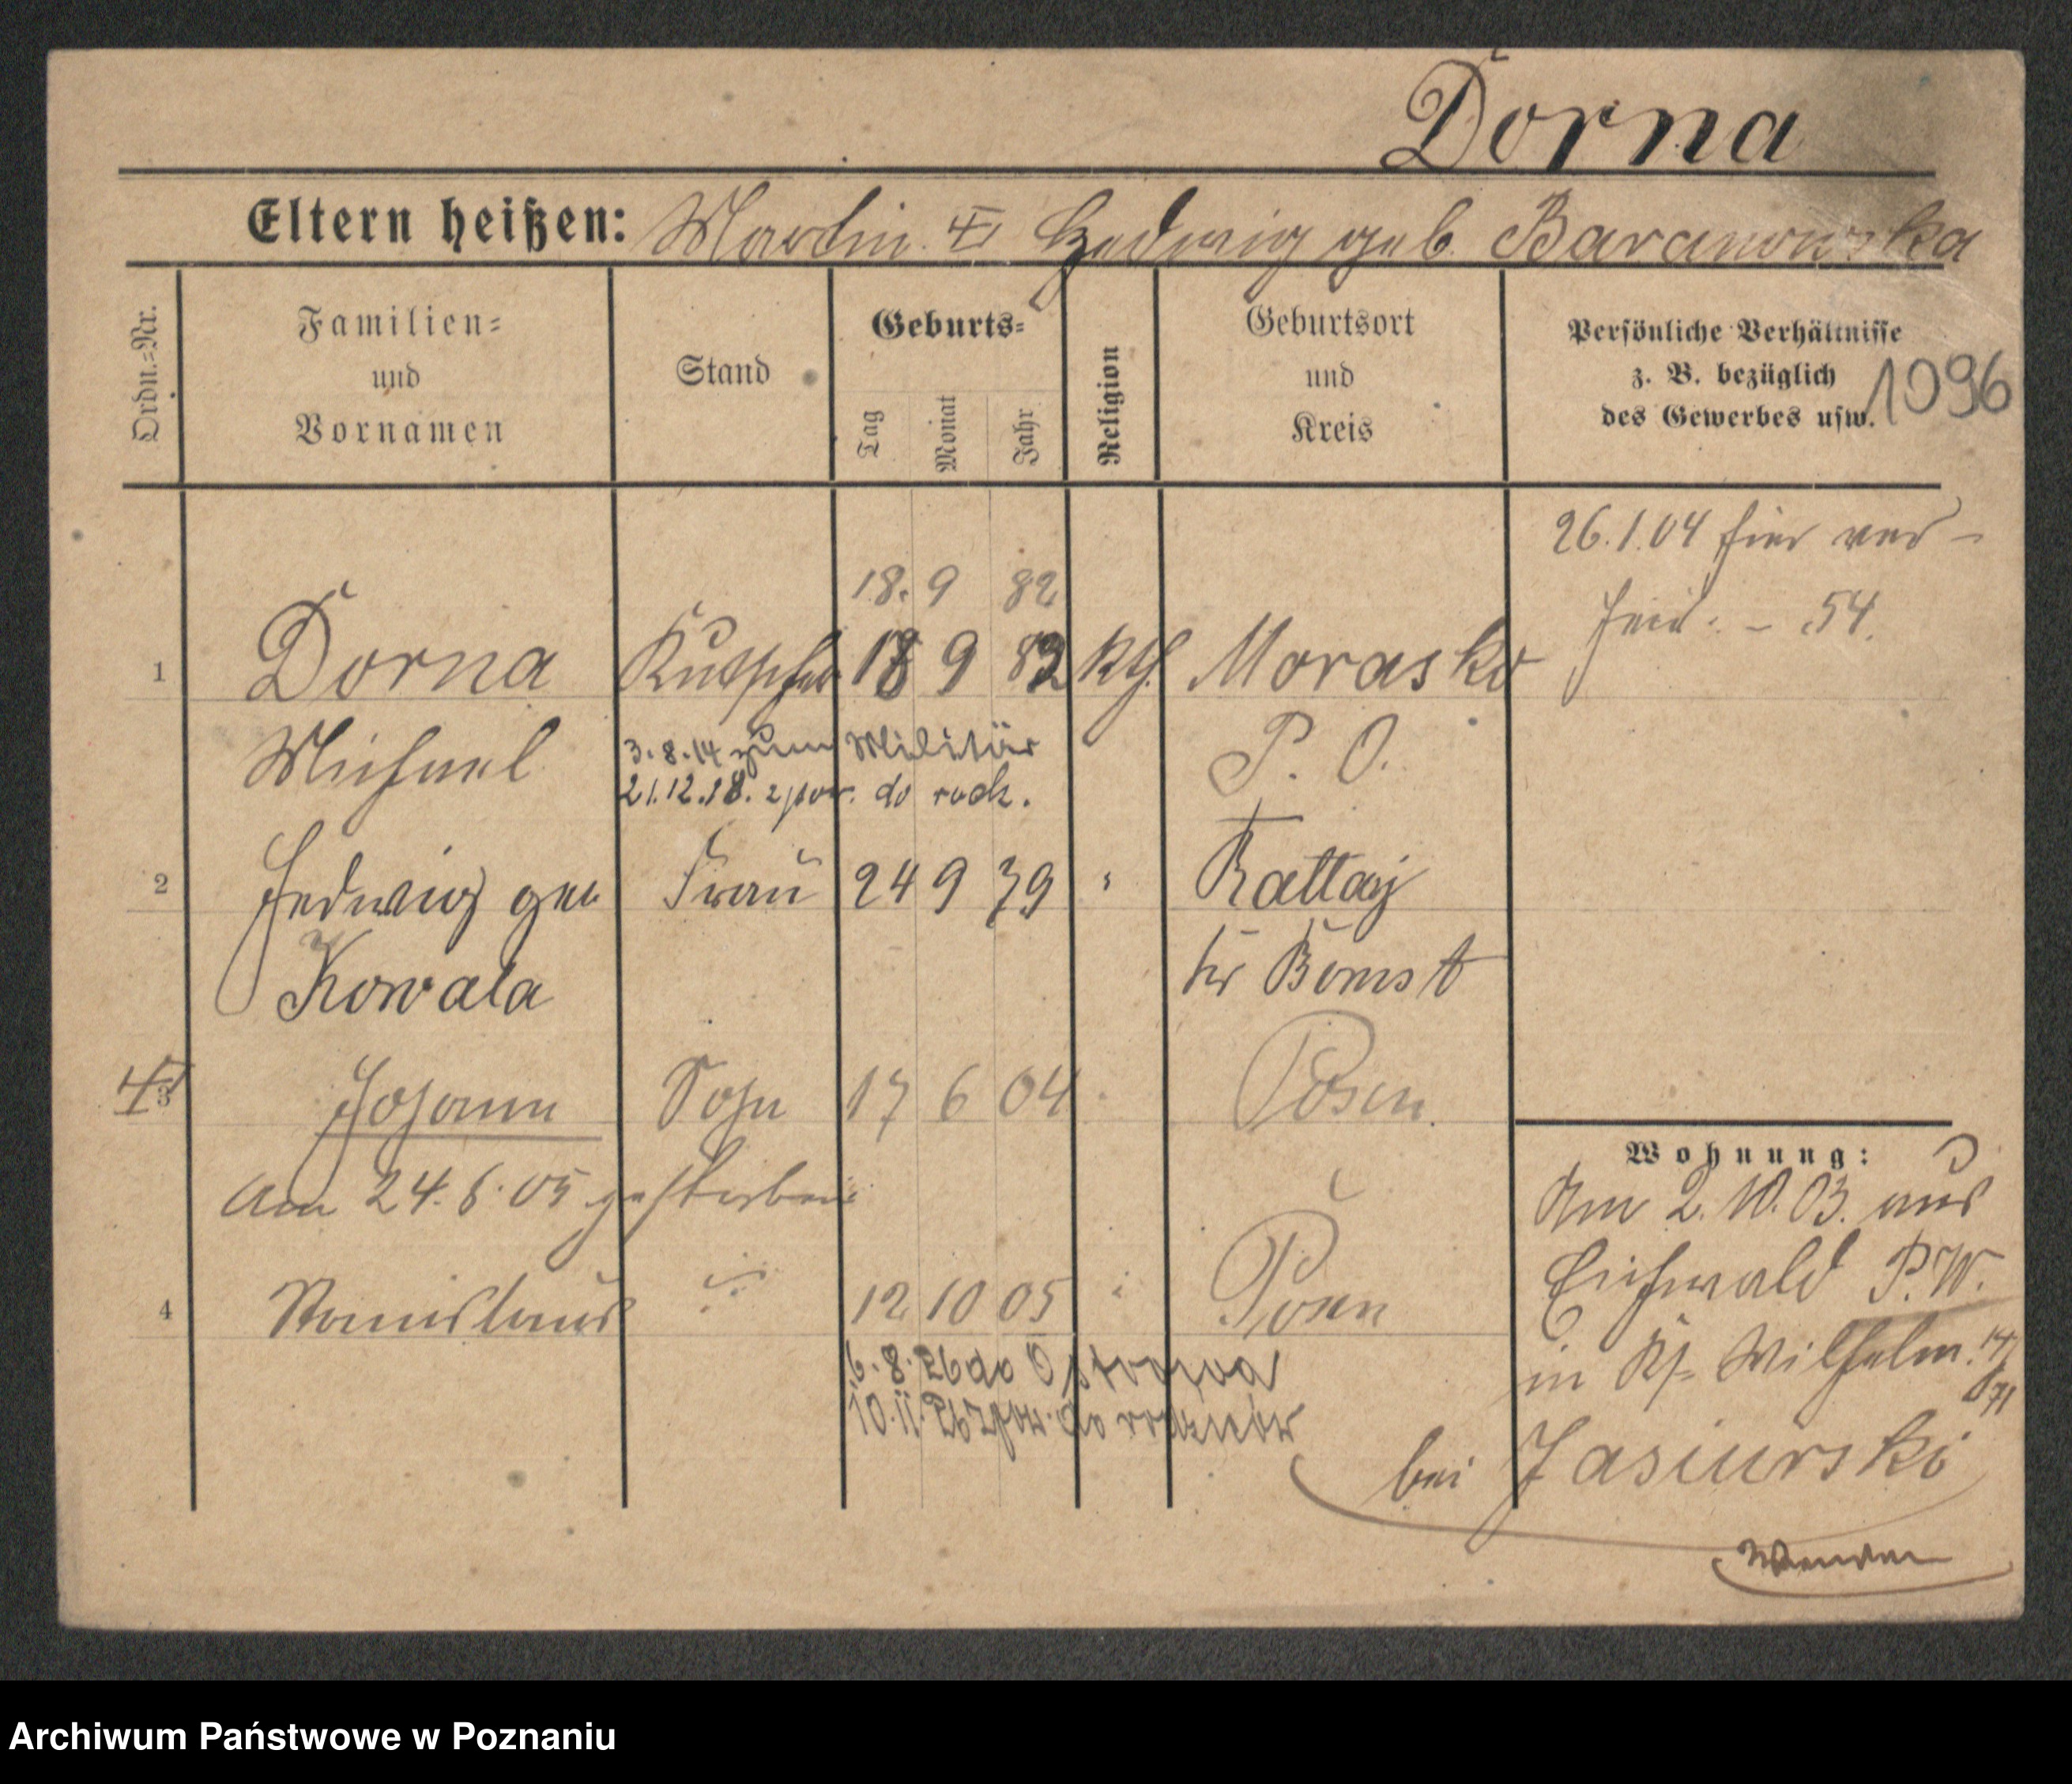 Dorna
Eltern heißen: Martin Hedwig geb. Baranowska
Ordn.=Nr.
Familien=
und
Vornamen
Stand
Geburts=
Tag
Monat
Jahr
Religion
Geburtsort
und
Kreis
Persönliche Verhältnisse
z. B. bezüglich
des Gewerbes usw.
1096
26.1.04 hier ver-
heir. - 54.
18. 9 82
1 Dorna Kutscher 18 9 82 kth. Morasko
Michael P. O.
3.8.14 zum Militär
21.12.18. z pow. do rodz.
2 Hedwig geb Frau 24 9 79 " Rattay
Kowala Kr Bomst
3 Johann Sohn 17 6 04 Posen
am 24.6.05 gestorben
4 Stanislaus 12 10 05 Posen
6.8.26 do Ostrowa
10.11.26 z pow. do rodziców
Wohnung:
Am 2.10.03. aus
Eichwald P.W.
in Wilhelm.
bei Jasiurski
Wenden
Archiwum Państwowe w Poznaniu